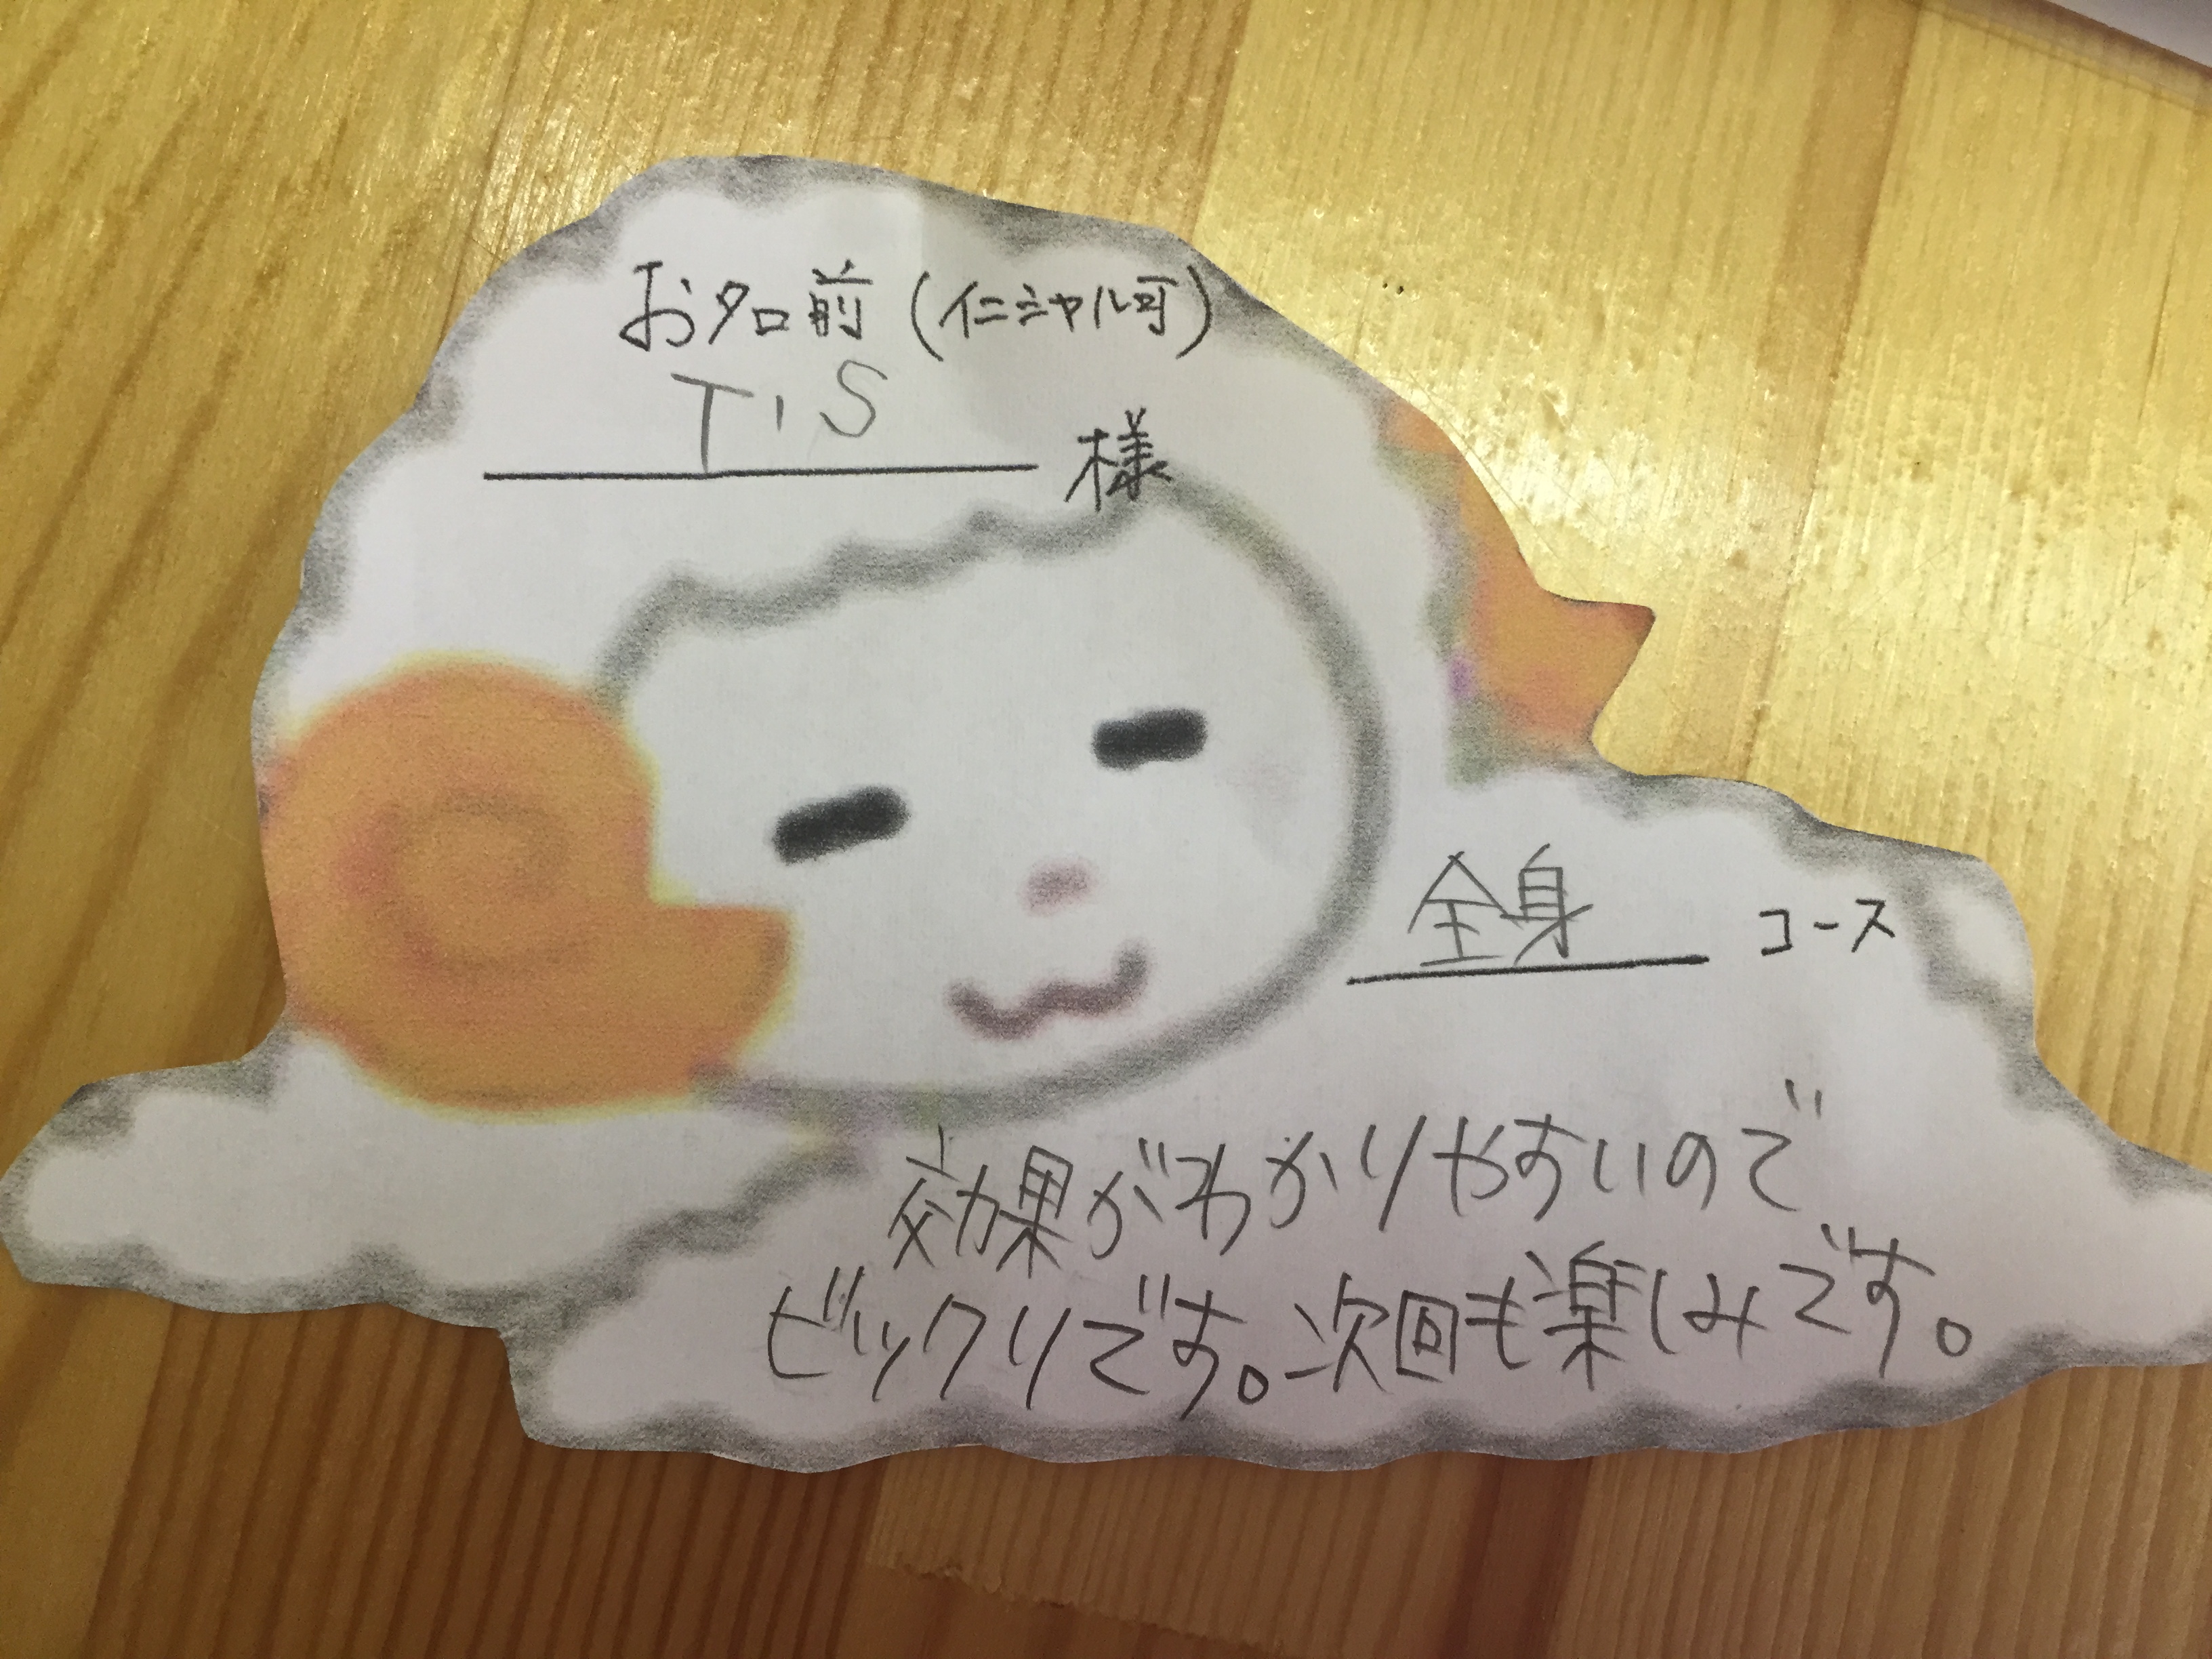 お名前（イニシャル可）
T・S 様
全身 コース
効果がわかりやすいので
ビックリです。次回も楽しみです。